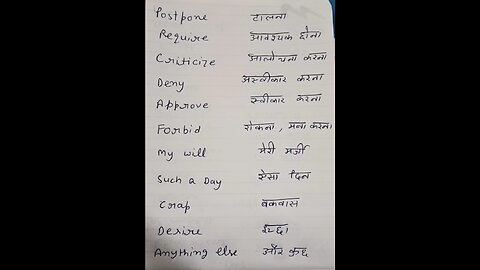 Postpone टालना
Require आवश्यक होना
Criticize आलोचना करना
Deny अस्वीकार करना
Approve स्वीकार करना
Forbid रोकना , मना करना
My will मेरी मर्जी
Such a Day ऐसा दिन
Crap बकवास
Desire इच्छा
Anything else और कुछ